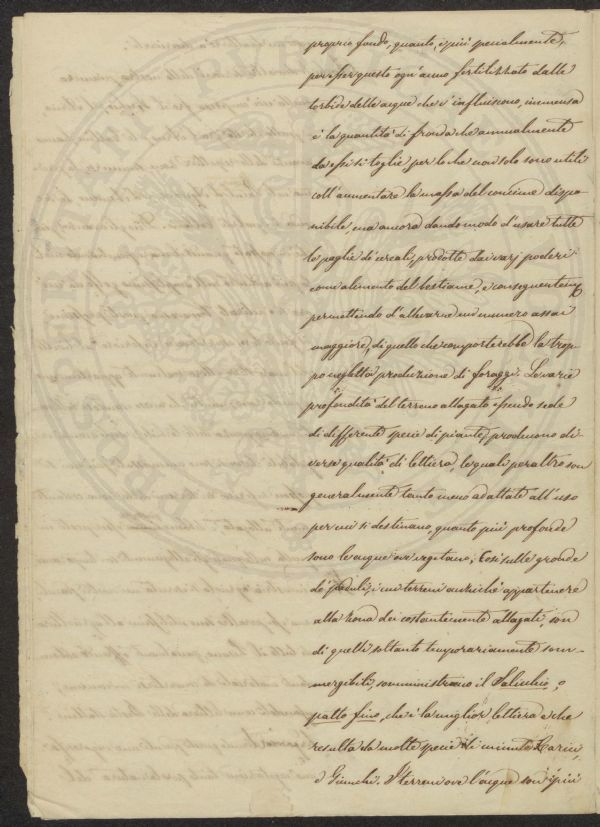 proprio fondo, quanto, e più specialmente,
per esser questo ogn'anno fertilizzato dalle
torbide delle acque che v'influiscono, immensa
è la quantità di fronda che annualmente
da essi si toglie, per lo che non solo sono utili
coll'aumentare la massa del concime dispo-
nibile, ma ancora dando modo d'usare tutte
le paglie di cereali, prodotte dai varj poderi
come alimento del bestiame, e conseguentem.
permettendo d'allevarne un numero assai
maggiore, di quello che comporterebbe la trop-
po negletta produzione di foraggi. Le varie
profondità del terreno allagato essendo sede
di differenti specie di piante, producono di-
verse qualità di lettiera, le quali peraltro son
generalmente tanto meno adattate all'uso
per cui si destinano, quanto più profonde
sono le acque ove vegetano; Così sulle gronde
de' paduli, i cui terreni anziché appartenere
alla zona dei costantemente allagati, son
di quelli soltanto temporariamente som-
mergibili, somministrano il Salicchio, o
patto fino, che è la miglior lettiera e che
resulta da molte specie di minute Carici,
e Giunchi. I terreni ove l'acque son più